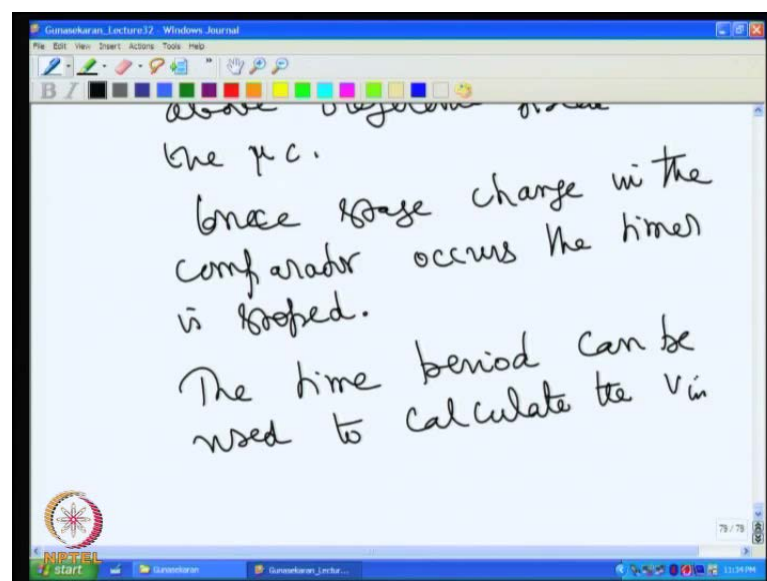 Gunasekaran_Lecture32 - Windows Journal
File Edit View Insert Actions Tools Help
B I
above
the μc.
Once stage change in the
comparador occurs the timer
is stoped.
The time period can be
used to calculate the Vin
79 / 79
NPTEL
start Gunasekaran Gunasekaran_Lectur... 11:34 PM